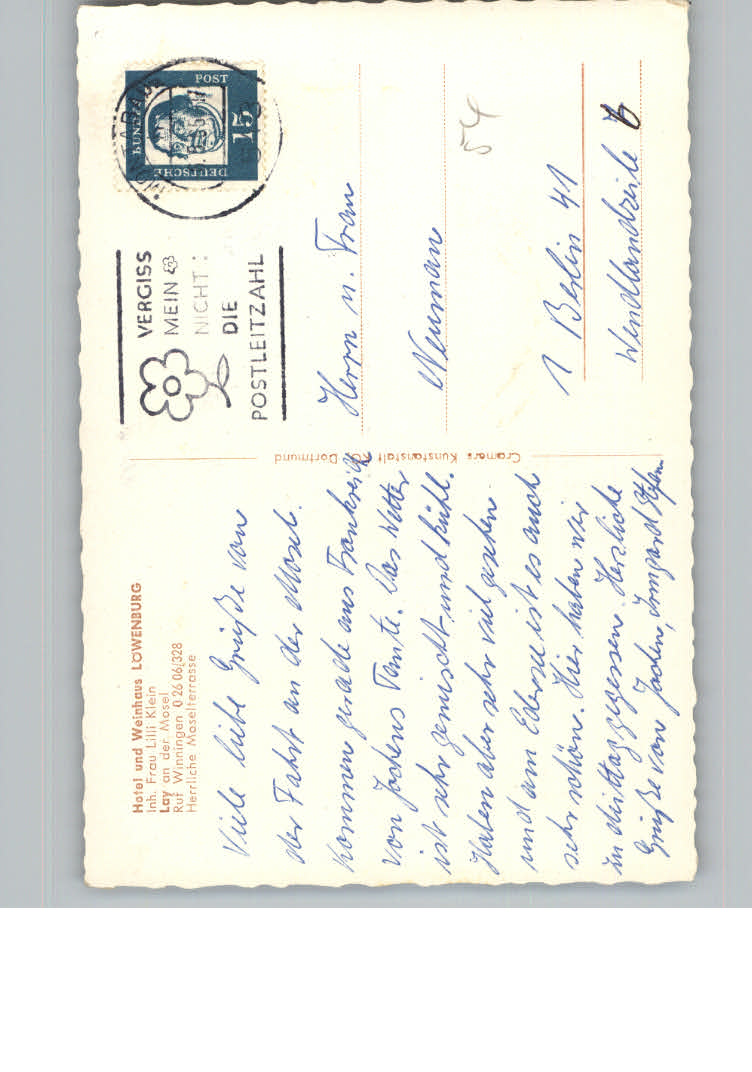 Hotel und Weinhaus LÖWENBURG
Inh. Frau Lilli Klein
Lay an der Mosel
Ruf Winningen 0 26 06/328
Herrliche Moselterrasse
Viele liebe Grüße von
der Fahrt an der Mosel.
Kommen gerade aus Frankreich
von Jochens Tante. Das Wetter
ist sehr gemischt und kühl.
Haben aber sehr viel gesehen
und am Edersee ist es auch
sehr schön. Hier haben wir
zu Mittag gegessen. Herzliche
Grüße von Jochen, Irmgard
Cramers Kunstanstalt KG, Dortmund
VERGISS
MEIN
NICHT:
DIE
POSTLEITZAHL
DEUTSCHE
BUNDESPOST
15
Herrn u. Frau
Neumann
1 Berlin 41
54